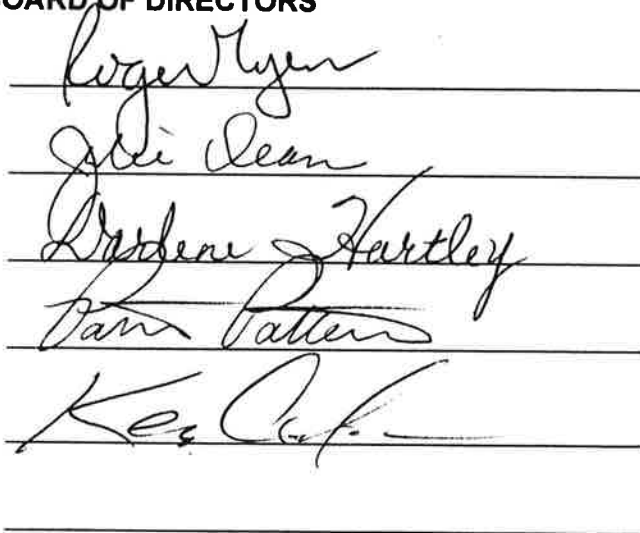 BOARD OF DIRECTORS
Roger Myers
Julie Dean
Darlene Hartley
Pam Patten
Ken